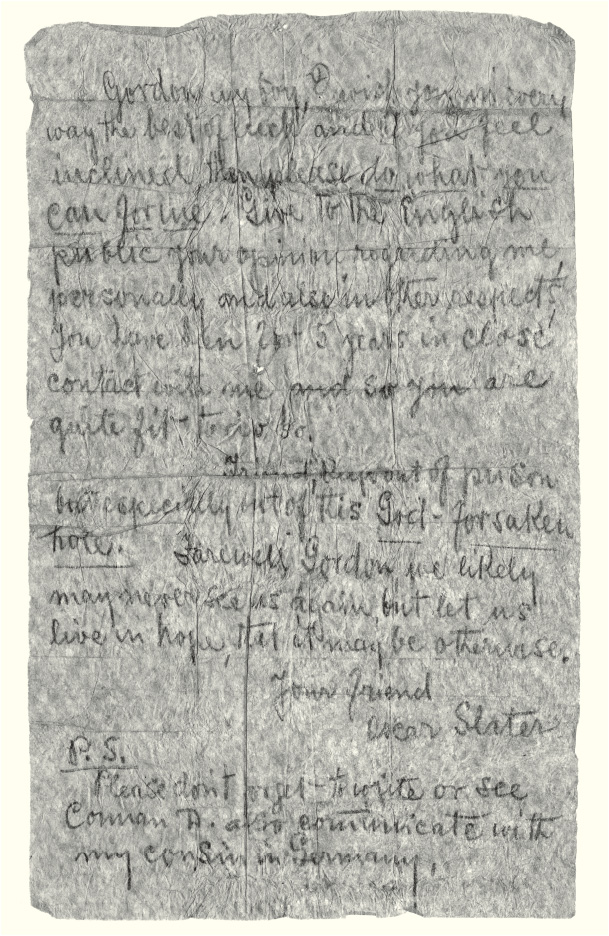 Gordon my boy, I wish you in every
way the best of luck and if you feel
inclined, then please do what you
can for me. Give to the English
public your opinion regarding me,
personally and also in other respects,
You have been for 5 years in close
contact with me and so you are
quite fit to do so.
Friend, keep out of prison
but especially out of this God-forsaken
hole. Farewell Gordon we likely
may never see us again, but let us
live in hope, that it may be otherwise.
Your friend
Oscar Slater
P. S.
Please don't forget to write or see
Connan D. also communicate with
my cousin in Germany.